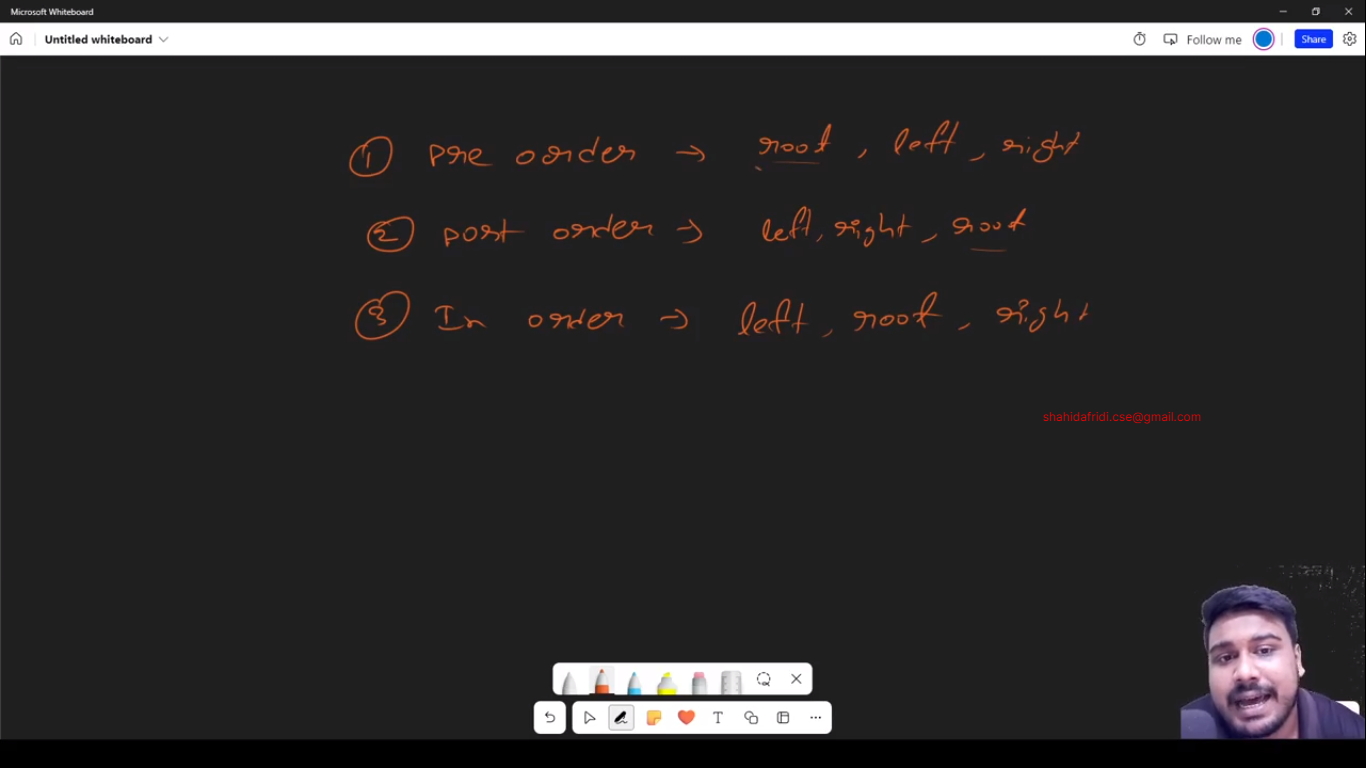 Microsoft Whiteboard
Untitled whiteboard
Follow me
Share
① Pre order → root, left, right
② post order → left, right, root
③ In order → left, root, right
shahidafridi.cse@gmail.com
T